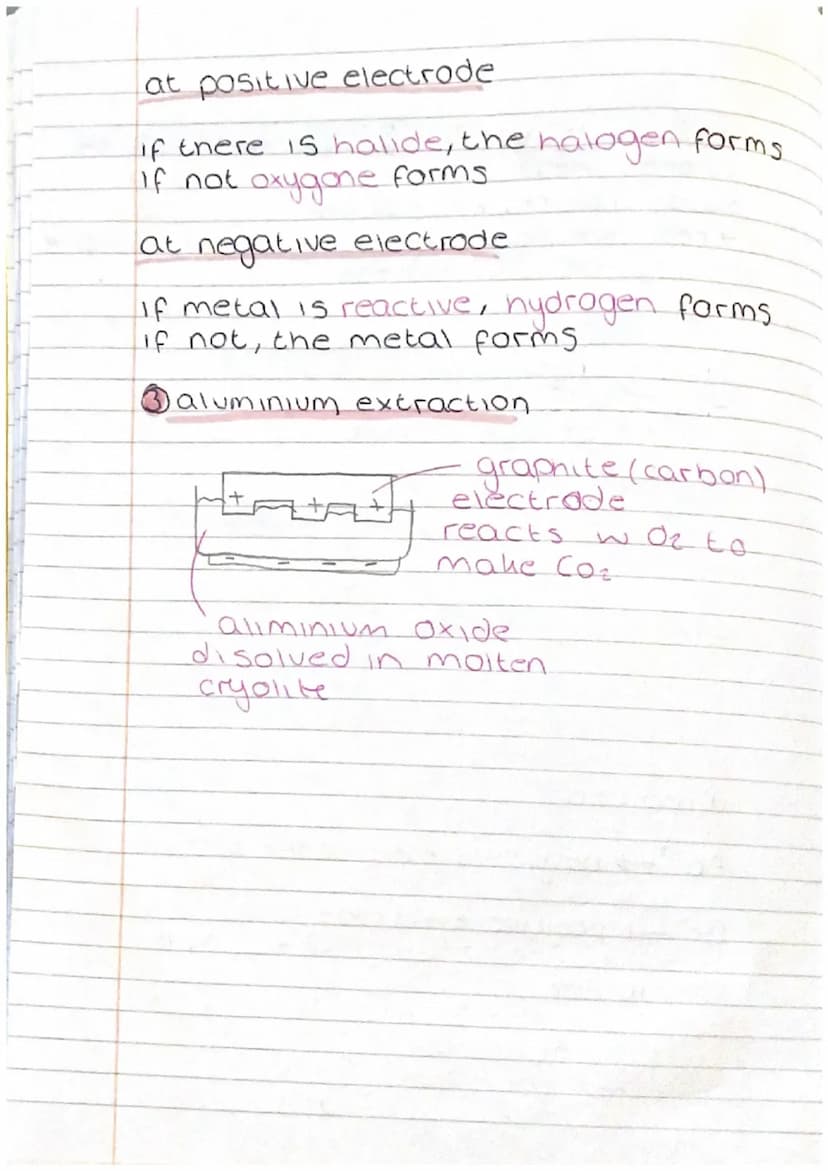 at positive electrode
if there is halide, the halogen forms
if not oxygone forms
at negative electrode
if metal is reactive, hydrogen forms
if not, the metal forms
③ aluminium extraction
graphite (carbon)
electrode
reacts w O₂ to
make CO₂
+ + +
- - -
aliminium oxide
disolved in molten
cryolite